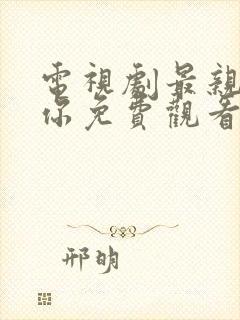 電視劇最親
你免費觀看
邢明